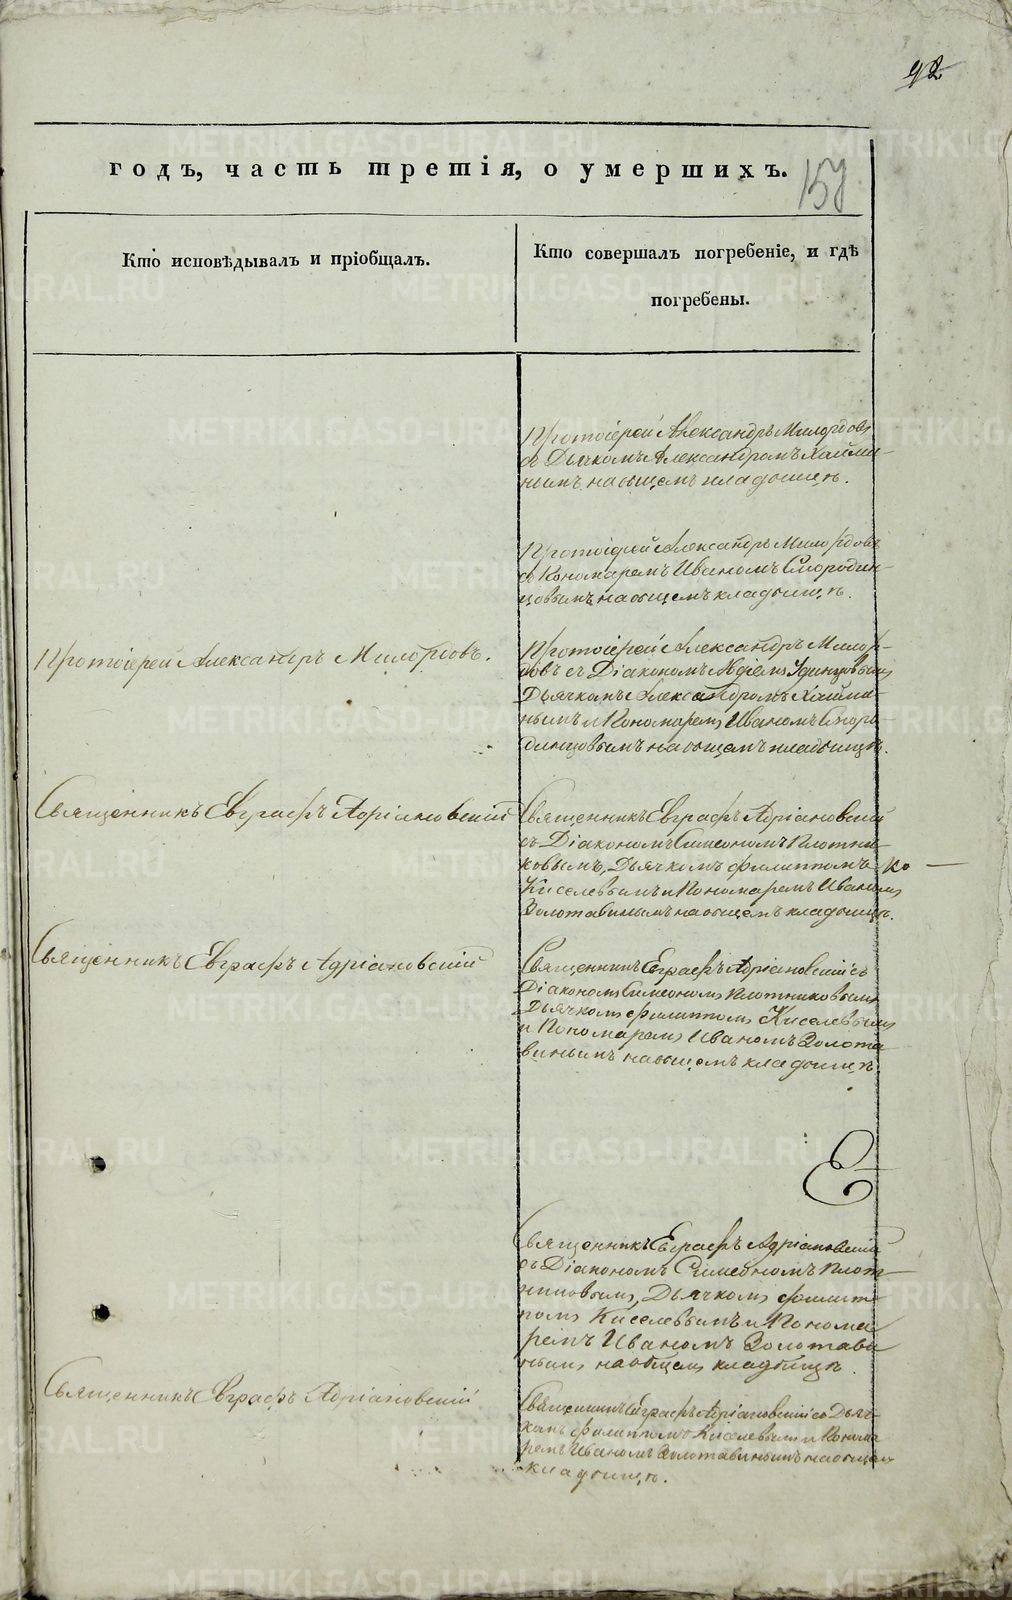 92
годъ, часть третія, о умершихъ.
157
Кто исповѣдывалъ и пріобщалъ.
Кто совершалъ погребеніе, и гдѣ
погребены.
Протоіерей Александръ Милордовъ
съ Дьячкомъ Александромъ Хайми-
нымъ на общемъ кладбищѣ.
Протоіерей Александръ Милордовъ
съ Пономаремъ Иваномъ Смородин-
цовымъ на общемъ кладбищѣ.
Протоіерей Александръ Милордовъ.
Протоіерей Александръ Милор-
довъ съ Діакономъ Удинцовымъ
Дьячкомъ Александромъ Хайми-
нымъ и Пономаремъ Иваномъ Смор-
динцовымъ на общемъ кладбищѣ.
Священникъ Евграфъ Адріановскій
Священникъ Евграфъ Адріановскій
съ Діакономъ Симеономъ Плотни-
ковымъ, Дьячкомъ Филиппомъ
Киселевымъ и Пономаремъ Иваномъ
Золотавинымъ на общемъ кладбищѣ.
Священникъ Евграфъ Адріановскій
Священникъ Евграфъ Адріановскій съ
Діакономъ Симеономъ Плотниковымъ
Дьячкомъ Филиппомъ Киселевымъ
и Пономаремъ Иваномъ Золота
винымъ на общемъ кладбищѣ.
Священникъ Евграфъ Адріановскій
съ Діакономъ Симеономъ Плот
никовымъ, Дьячкомъ Филип
помъ Киселевымъ и Понома
ремъ Иваномъ Золотави
нымъ на общемъ кладбищѣ.
Священникъ Евграфъ Адріановскій
Священникъ Евграфъ Адріановскій съ Дьяч-
комъ Филиппомъ Киселевымъ и Понома
ремъ Иваномъ Золотавинымъ на общемъ
кладбищѣ.
METRIKI.GASO-URAL.RU